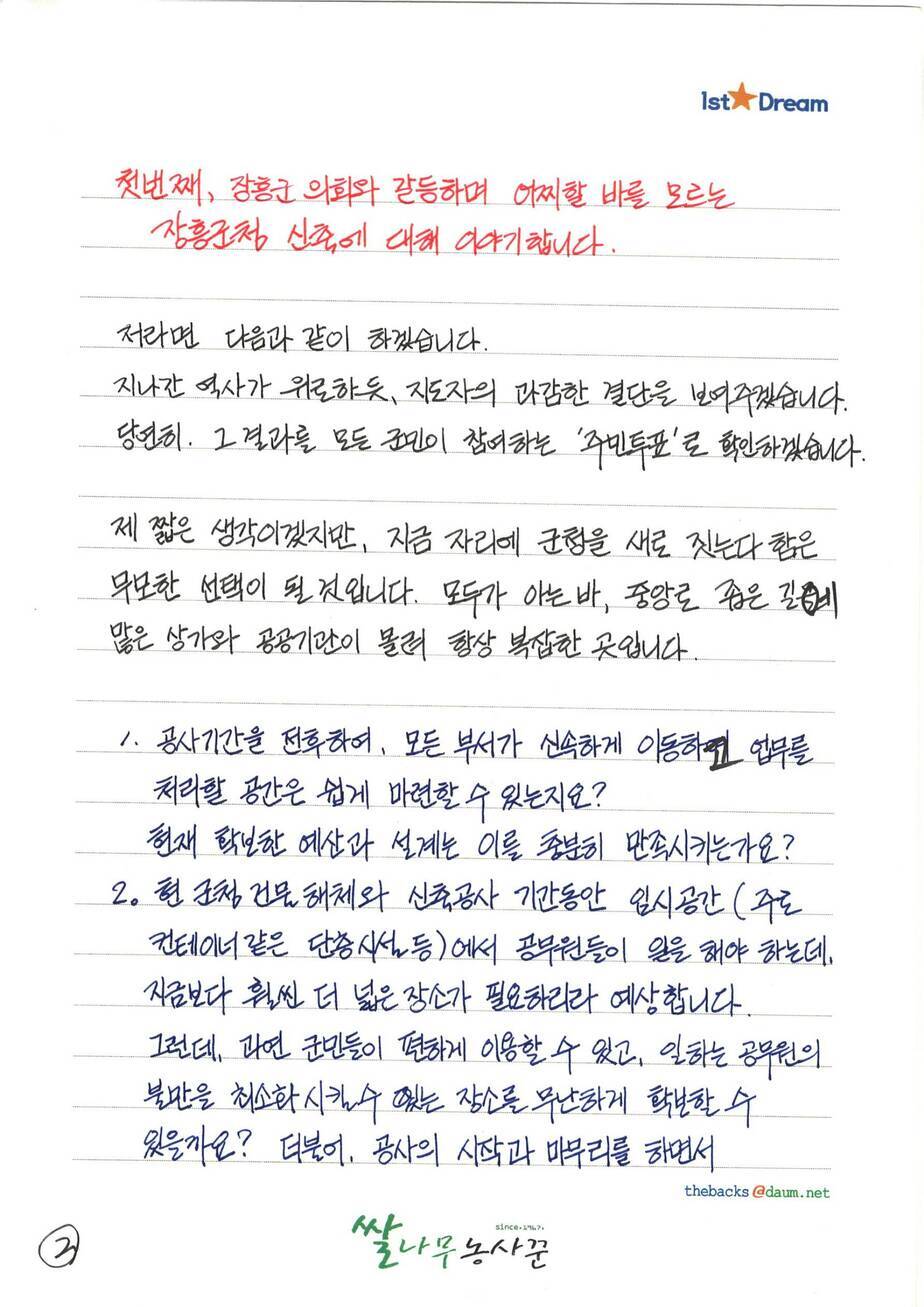 1st★Dream
첫번째, 장흥군 의회와 갈등하며 어찌할 바를 모르는
장흥군청 신축에 대해 이야기합니다.
저라면 다음과 같이 하겠습니다.
지나간 역사가 위로하듯, 지도자의 과감한 결단을 보여주겠습니다.
당연히. 그 결과를 모든 군민이 참여하는 '주민투표'로 확인하겠습니다.
제 짧은 생각이겠지만, 지금 자리에 군청을 새로 짓는다 함은
무모한 선택이 될 것입니다. 모두가 아는 바, 중앙로 좁은 길에
많은 상가와 공공기관이 몰려 항상 복잡한 곳입니다.
1. 공사기간을 전후하여, 모든 부서가 신속하게 이동하고 업무를
처리할 공간은 쉽게 마련할 수 있는지요?
현재 확보한 예산과 설계는 이를 충분히 만족시키는가요?
2. 현 군청 건물 해체와 신축공사 기간동안 임시공간(주로
컨테이너 같은 단층시설 등)에서 공무원들이 일을 해야 하는데,
지금보다 훨씬 더 넓은 장소가 필요하리라 예상합니다.
그런데, 과연 군민들이 편하게 이용할 수 있고, 일하는 공무원의
불만을 최소화 시킬 수 있는 장소를 무난하게 확보할 수
있을까요? 더불어, 공사의 시작과 마무리를 하면서
thebacks@daum.net
since.1967.
쌀나무농사꾼
2